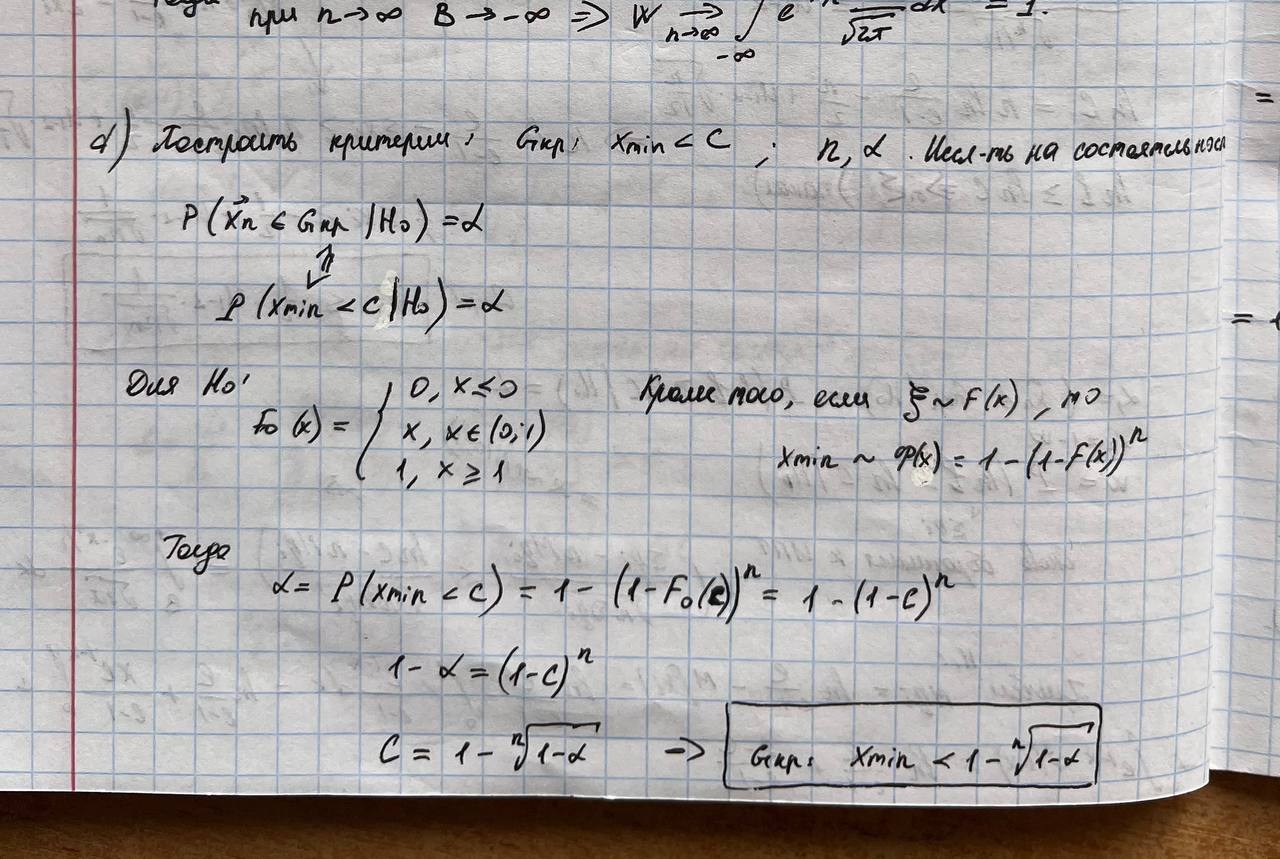 при n→∞ B→-∞ ⇒ W → n→∞ ∫ -∞ e √2π dx = 1.
d) Построить критерий: Gкр: xmin < C ; n, α. Иссл-ть на состоятельность
P(x⃗n ∈ Gкр | H₀) = α
⇕
P(xmin < C | H₀) = α
Для H₀: F₀(x) = { 0, x ≤ 0
x, x ∈ (0;1)
1, x ≥ 1
Кроме того, если ξ ~ F(x), то
xmin ~ φ(x) = 1 - (1-F(x))ⁿ
Тогда
α = P(xmin < C) = 1 - (1-F₀(C))ⁿ = 1 - (1-C)ⁿ
1 - α = (1-C)ⁿ
C = 1 - ⁿ√1-α → Gкр: xmin < 1 - ⁿ√1-α